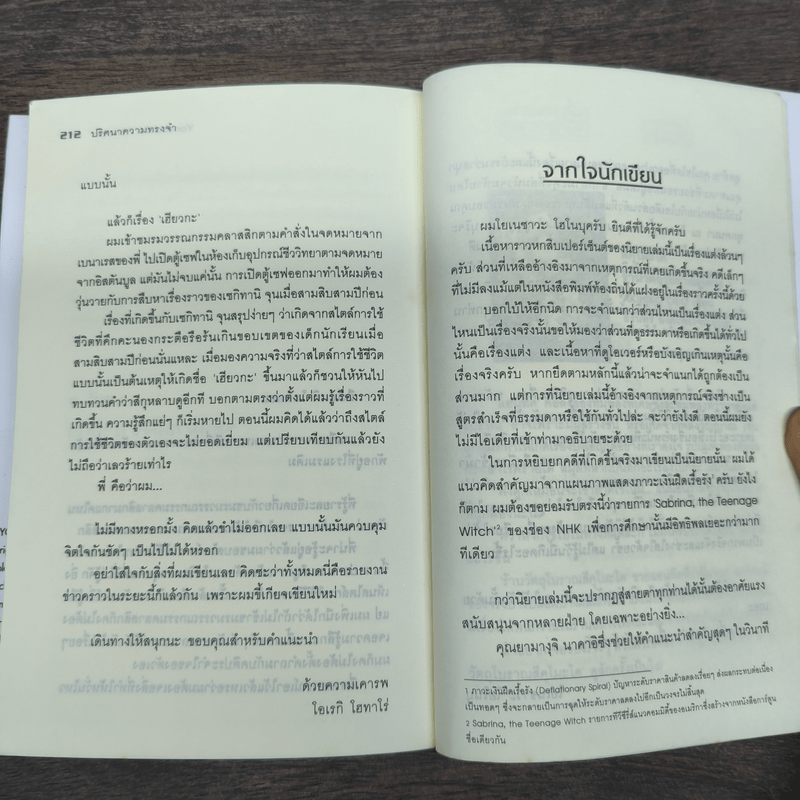 212 ปริศนาความทรงจำ
แบบนั้น
แล้วก็เรื่อง 'เฮียวกะ'
ผมเข้าชมรมวรรณกรรมคลาสสิกตามคำสั่งในจดหมายจาก
เบนาเรสของพี่ ไปเปิดตู้เซฟในห้องเก็บอุปกรณ์ชีววิทยาตามจดหมาย
จากอิสตันบูล แต่มันไม่จบแค่นั้น การเปิดตู้เซฟออกมาทำให้ผมต้อง
วุ่นวายกับการสืบหาเรื่องราวของเซกิทานิ จุนเมื่อสามสิบสามปีก่อน
เรื่องที่เกิดขึ้นกับเซกิทานิ จุนสรุปง่ายๆ ว่าเกิดจากสไตล์การใช้
ชีวิตที่คึกคะนองกระตือรือร้นเกินขอบเขตของเด็กนักเรียนเมื่อ
สามสิบสามปีก่อนนั่นแหละ เมื่อมองความจริงที่ว่าสไตล์การใช้ชีวิต
แบบนั้นเป็นต้นเหตุให้เกิดชื่อ 'เฮียวกะ' ขึ้นมาแล้วก็ชวนให้หันไป
ทบทวนคำว่าสีกุหลาบดูอีกที บอกตามตรงว่าตั้งแต่ผมรู้เรื่องราวที่
เกิดขึ้น ความรู้สึกแย่ๆ ก็เริ่มหายไป ตอนนี้ผมคิดได้แล้วว่าถึงสไตล์
การใช้ชีวิตของตัวเองจะไม่ยอดเยี่ยม แต่เปรียบเทียบกันแล้วยัง
ไม่ถือว่าเลวร้ายเท่าไร
พี่ คือว่าผม...
ไม่มีทางหรอกมั้ง คิดแล้วขำไม่ออกเลย แบบนั้นมันควบคุม
จิตใจกันชัดๆ เป็นไปไม่ได้หรอก
อย่าใส่ใจกับสิ่งที่ผมเขียนเลย คิดซะว่าทั้งหมดนี้คือรายงาน
ข่าวคราวในระยะนี้ก็แล้วกัน เพราะผมขี้เกียจเขียนใหม่
เดินทางให้สนุกนะ ขอบคุณสำหรับคำแนะนำ
ด้วยความเคารพ
โอเรกิ โฮทาโร่
จากใจนักเขียน
ผมโยเนซาวะ โฮโนบุครับ ยินดีที่ได้รู้จักครับ
เนื้อหาราวหกสิบเปอร์เซ็นต์ของนิยายเล่มนี้เป็นเรื่องแต่งล้วนๆ
ครับ ส่วนที่เหลืออ้างอิงมาจากเหตุการณ์ที่เคยเกิดขึ้นจริง คดีเล็กๆ
ที่ไม่มีลงแม้แต่ในหนังสือพิมพ์ท้องถิ่นได้แฝงอยู่ในเรื่องราวครั้งนี้ด้วย
บอกใบ้ให้อีกนิด การจะจำแนกว่าส่วนไหนเป็นเรื่องแต่ง ส่วน
ไหนเป็นเรื่องจริงนั้นขอให้มองว่าส่วนที่ดูธรรมดาหรือเกิดขึ้นได้ทั่วไป
นั้นคือเรื่องแต่ง และเนื้อหาที่ดูโอเวอร์หรือบังเอิญเกินเหตุนั้นคือ
เรื่องจริงครับ หากยึดตามหลักนี้แล้วน่าจะจำแนกได้ถูกต้องเป็น
ส่วนมาก แต่การที่นิยายเล่มนี้อ้างอิงจากเหตุการณ์จริงช่างเป็น
สูตรสำเร็จที่ธรรมดาหรือใช้กันทั่วไปละ จะว่ายังไงดี ตอนนี้ผมยัง
ไม่มีไอเดียที่เข้าท่ามาอธิบายซะด้วย
ในการหยิบยกคดีที่เกิดขึ้นจริงมาเขียนเป็นนิยายนั้น ผมได้
แนวคิดสำคัญมาจากแผนภาพแสดงภาวะเงินฝืดเรื้อรัง¹ ครับ ยังไง
ก็ตาม ผมต้องขอยอมรับตรงนี้ว่ารายการ 'Sabrina, the Teenage
Witch'² ของช่อง NHK เพื่อการศึกษานั้นมีอิทธิพลเยอะกว่ามาก
ทีเดียว
กว่านิยายเล่มนี้จะปรากฏสู่สายตาทุกท่านได้นั้นต้องอาศัยแรง
สนับสนุนจากหลายฝ่าย โดยเฉพาะอย่างยิ่ง...
คุณยามางุจิ นาคาอิซึ่งช่วยให้คำแนะนำสำคัญสุดๆ ในวินาที
1 ภาวะเงินฝืดเรื้อรัง (Deflationary Spiral) ปัญหาระดับราคาสินค้าลดลงเรื่อยๆ ส่งผลกระทบต่อเนื่อง
เป็นทอดๆ ซึ่งจะกลายเป็นการฉุดให้ระดับราคาลดลงไปอีกเป็นวงจรไม่สิ้นสุด
2 Sabrina, the Teenage Witch รายการทีวีซีรี่ส์แนวคอมมิดี้ของอเมริกาซึ่งสร้างจากหนังสือการ์ตูน
ชื่อเดียวกัน